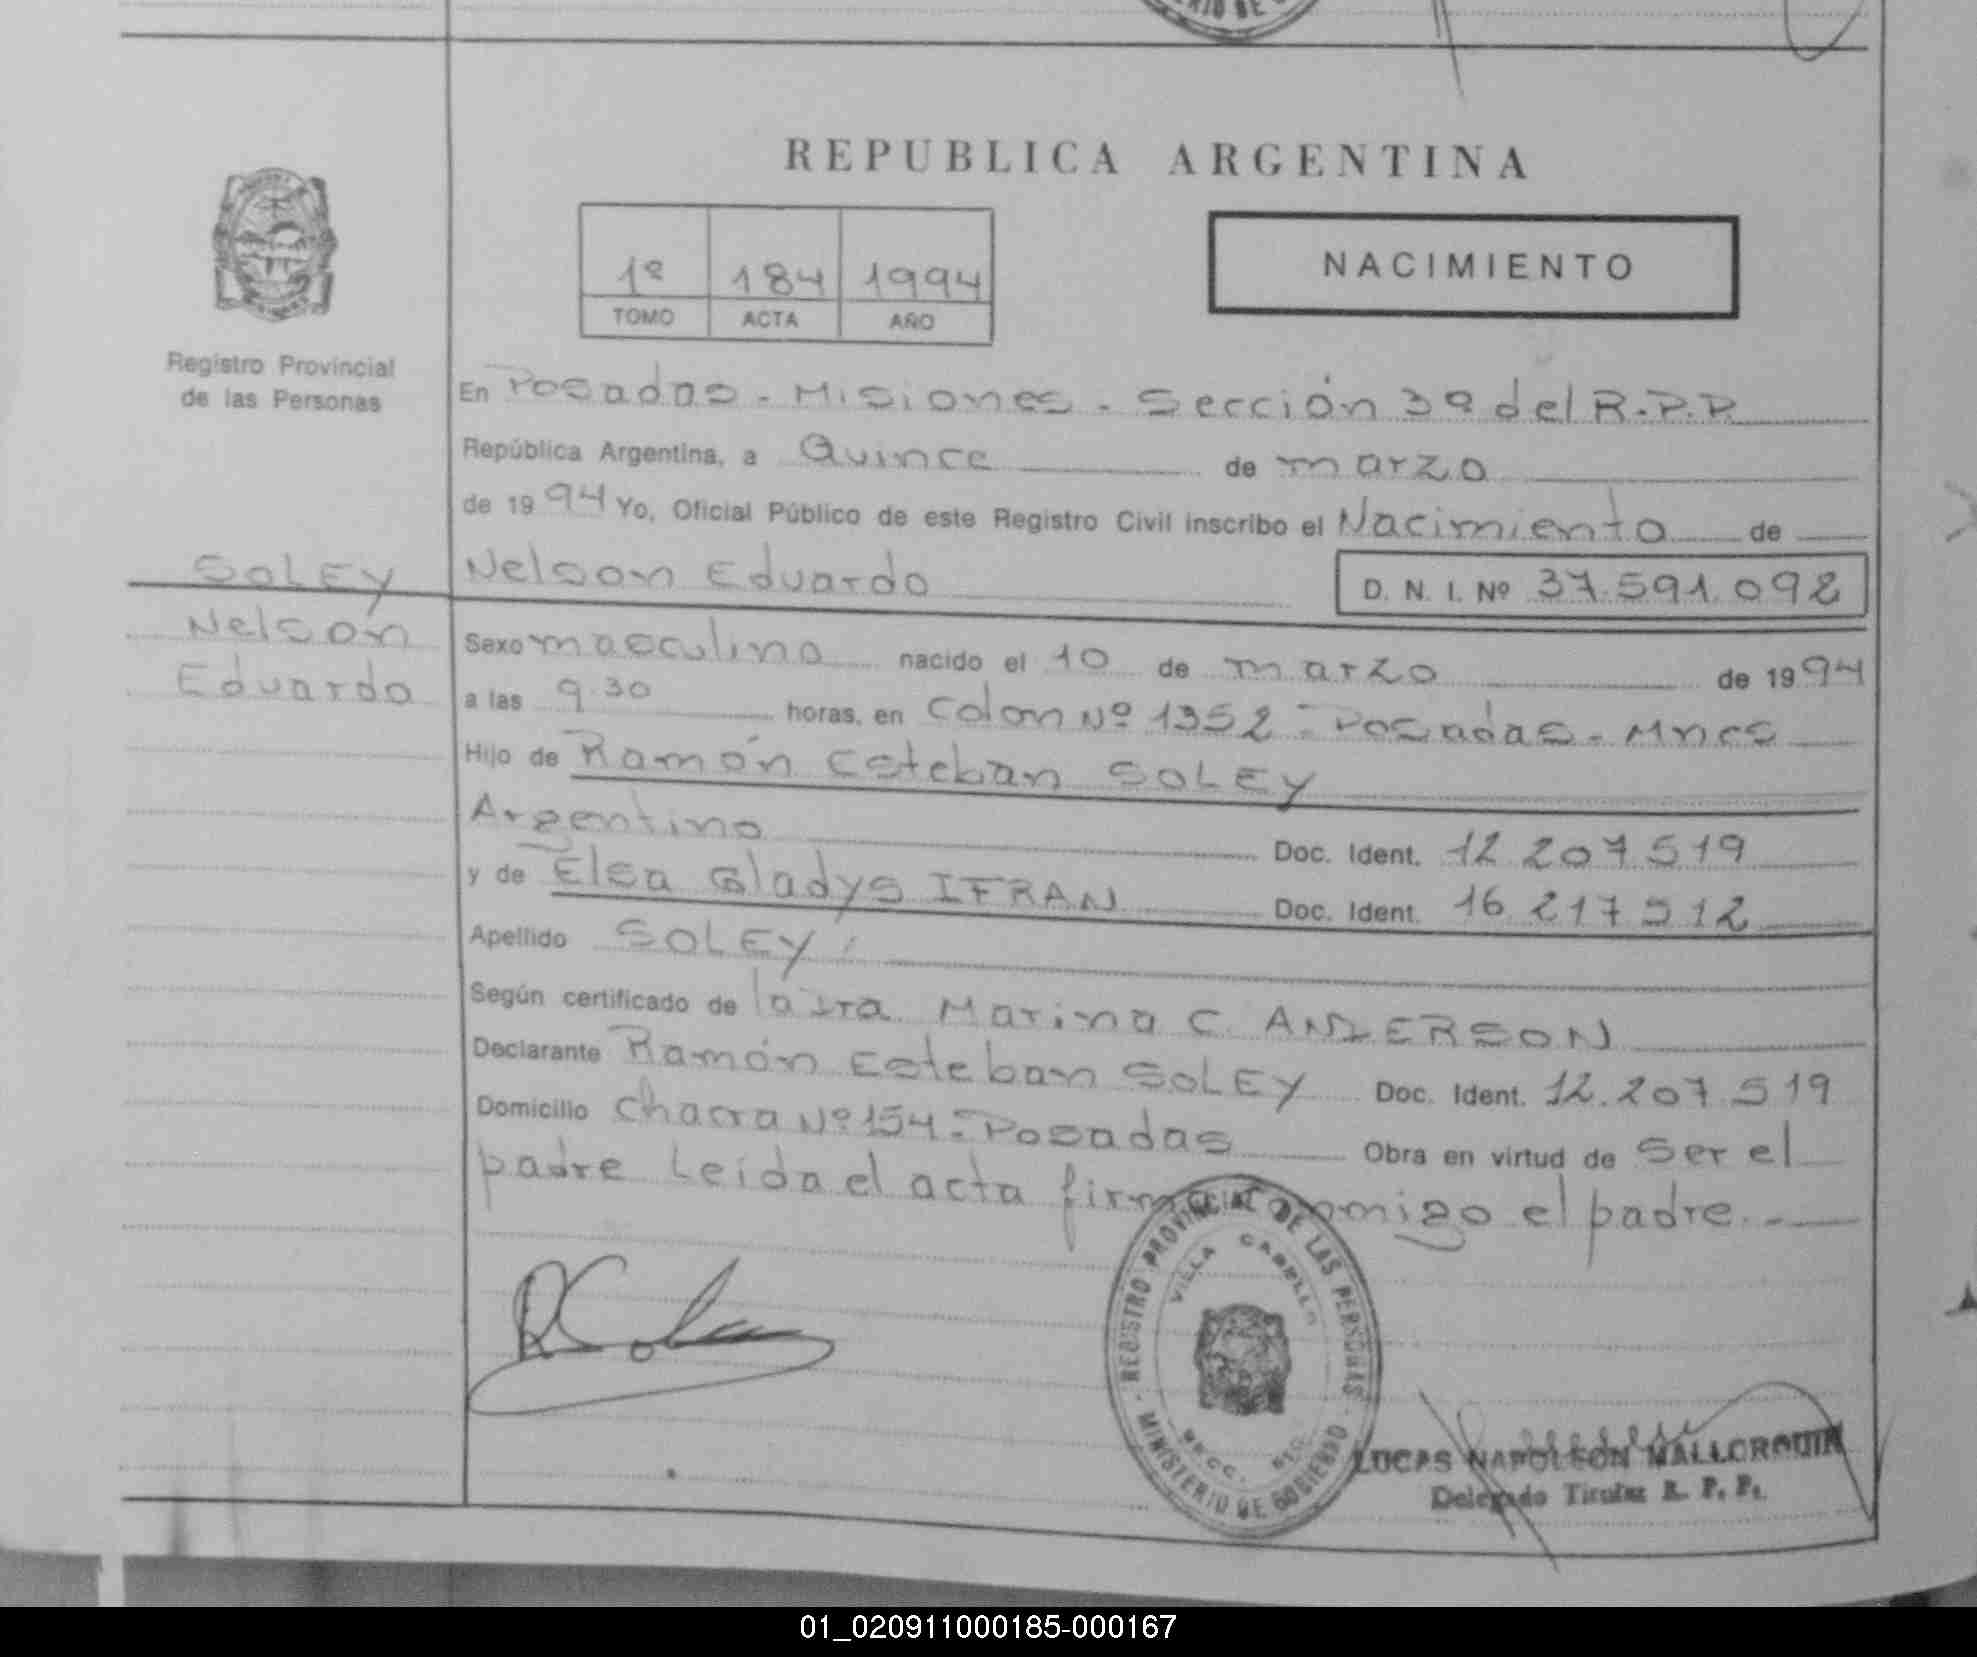 REPUBLICA ARGENTINA
1º 184 1994
TOMO ACTA AÑO
NACIMIENTO
Registro Provincial
de las Personas
En Posadas - Misiones - Sección 3ª del R.P.P.
República Argentina, a Quince de marzo
de 1994 Yo, Oficial Público de este Registro Civil inscribo el Nacimiento de
SOLEY
Nelson
Eduardo
Nelson Eduardo D. N. I. Nº 37.591.092
Sexo masculino nacido el 10 de marzo de 1994
a las 9.30 horas, en Colon Nº 1352 - Posadas - Mnes
Hijo de Ramón Esteban SOLEY
Argentino Doc. Ident. 12.207.519
y de Elsa Gladys IFRAN Doc. Ident. 16.217.512
Apellido SOLEY
Según certificado de la Marina C. ANDERSON
Declarante Ramón Esteban SOLEY Doc. Ident. 12.207.519
Domicilio chacra Nº 154 - Posadas Obra en virtud de ser el
padre Leída el acta firma conmigo el padre.-
REGISTRO PROVINCIAL DE LAS PERSONAS
VILLA CABELLO
MINISTERIO DE GOBIERNO
LUCAS NAPOLEON MALLORQUIN
Delegado Titular R. P. P.
01_020911000185-000167